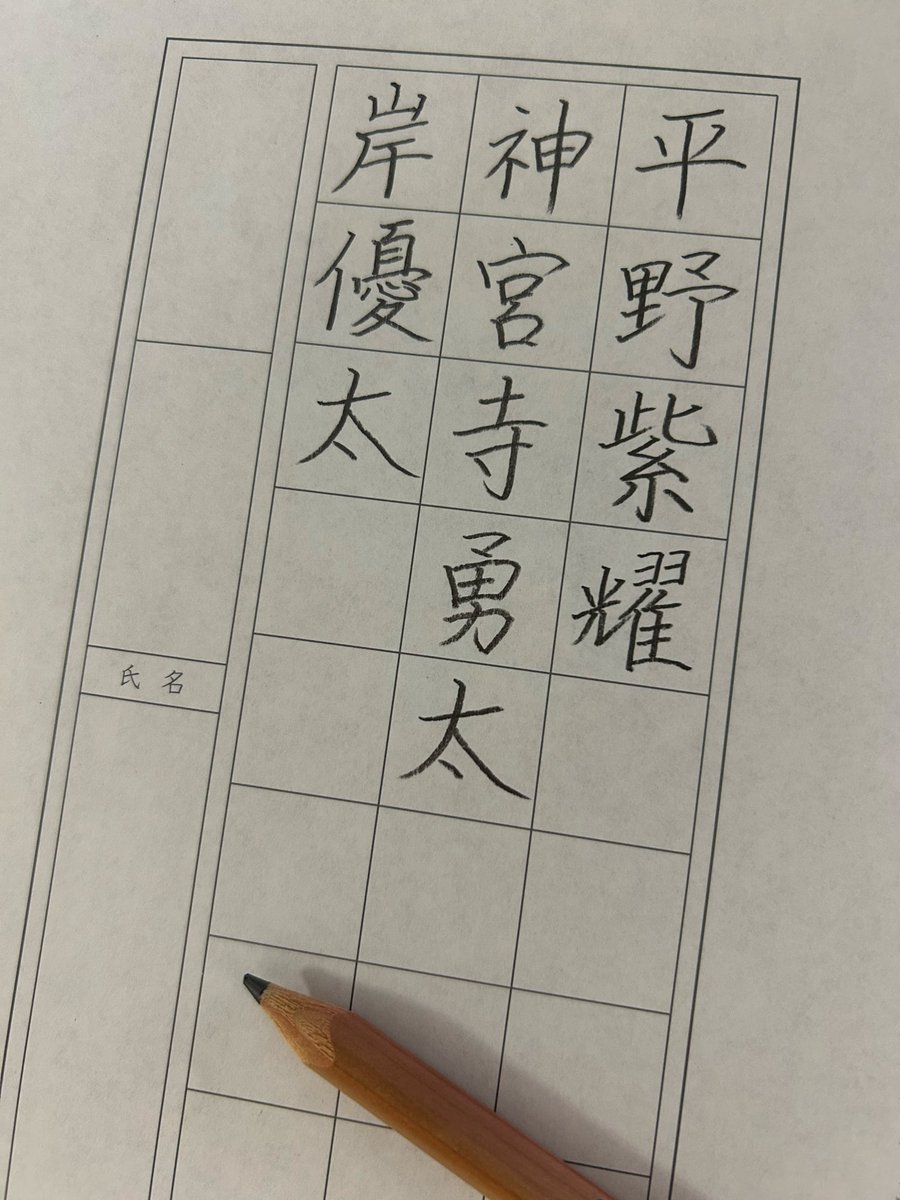 平野紫耀
神宮寺勇太
岸優太
氏名